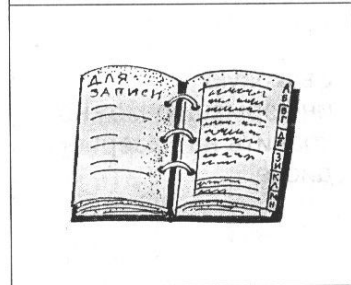 ДЛЯ
ЗАПИСИ
А
Б
В
Г
Д
Е
З
И
К
Л
М
Н